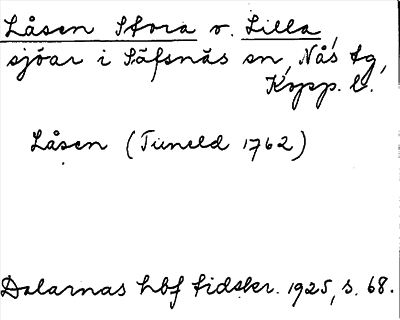 Låsen Stora o. Lilla,
sjöar i Säfsnäs sn, Nås tg,
Kopp. l.
Låsen (Tuneld 1762)
Dalarnas hbf tidskr. 1925, s. 68.